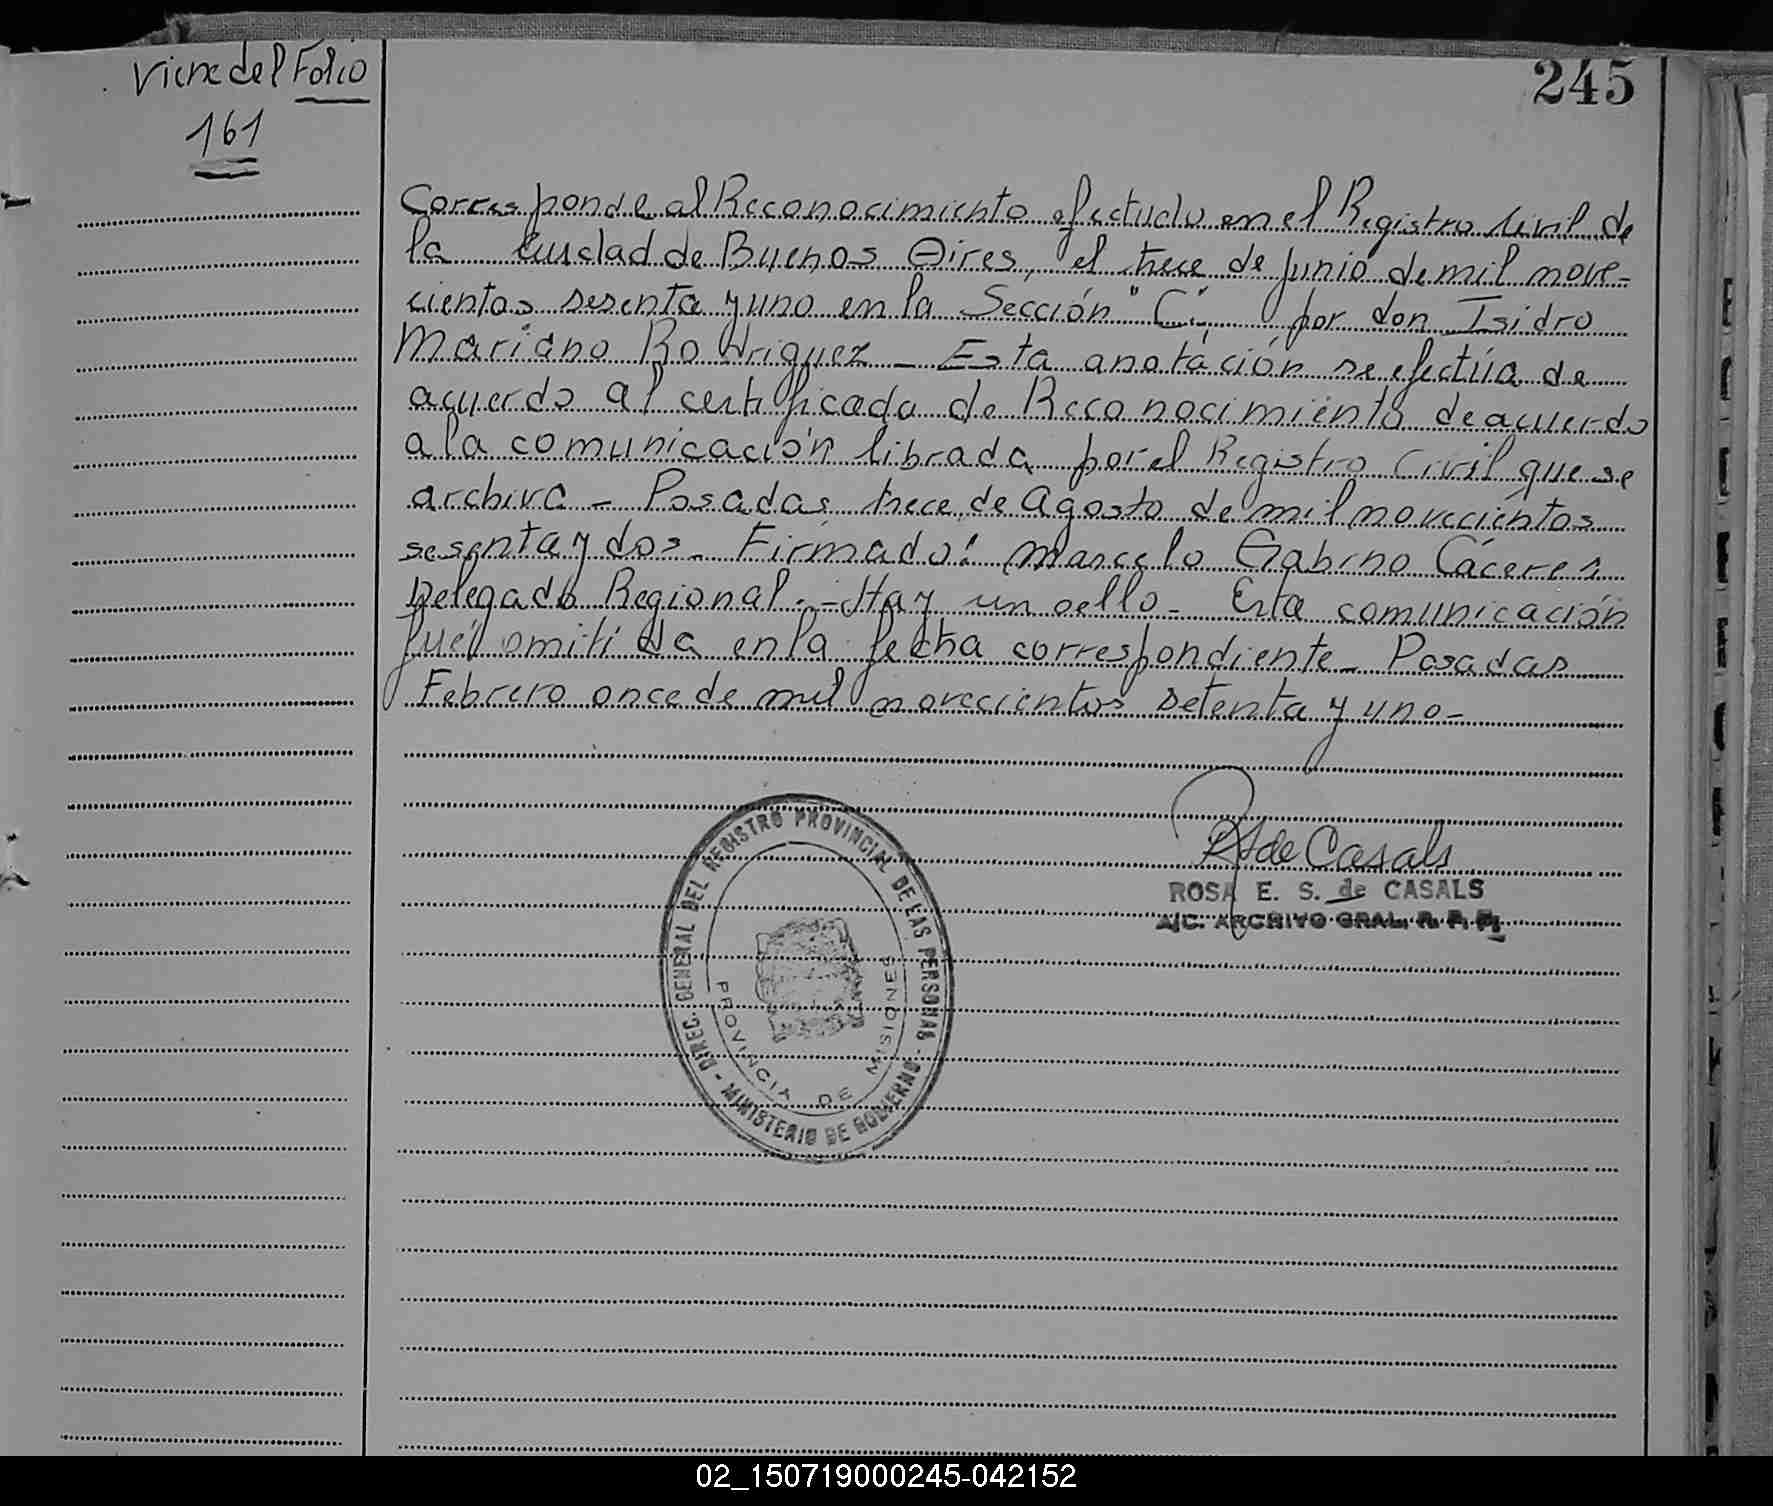 Viene del Folio
161
245
Corresponde al Reconocimiento efectudo en el Registro Civil de
la Ciudad de Buenos Aires, el trece de Junio de mil nove-
cientos sesenta y uno en la Sección "C", por don Isidro
Mariano Rodriguez - Esta anotación se efectúa de
acuerdo al certificado de Reconocimiento de acuerdo
a la comunicación librada por el Registro Civil que se
archiva - Posadas, trece de Agosto de mil novecientos
sesenta y dos - Firmado: Marcelo Gabino Cáceres
Delegado Regional. - Hay un sello - Esta comunicación
fué omitida en la fecha correspondiente - Posadas
Febrero once de mil novecientos setenta y uno -
RS de Casals
ROSA E. S. de CASALS
A/C. ARCHIVO GRAL. R. P. P.
DIREC. GENERAL DEL REGISTRO PROVINCIAL DE LAS PERSONAS - MINISTERIO DE GOBIERNO -
PROVINCIA DE MISIONES
02_150719000245-042152